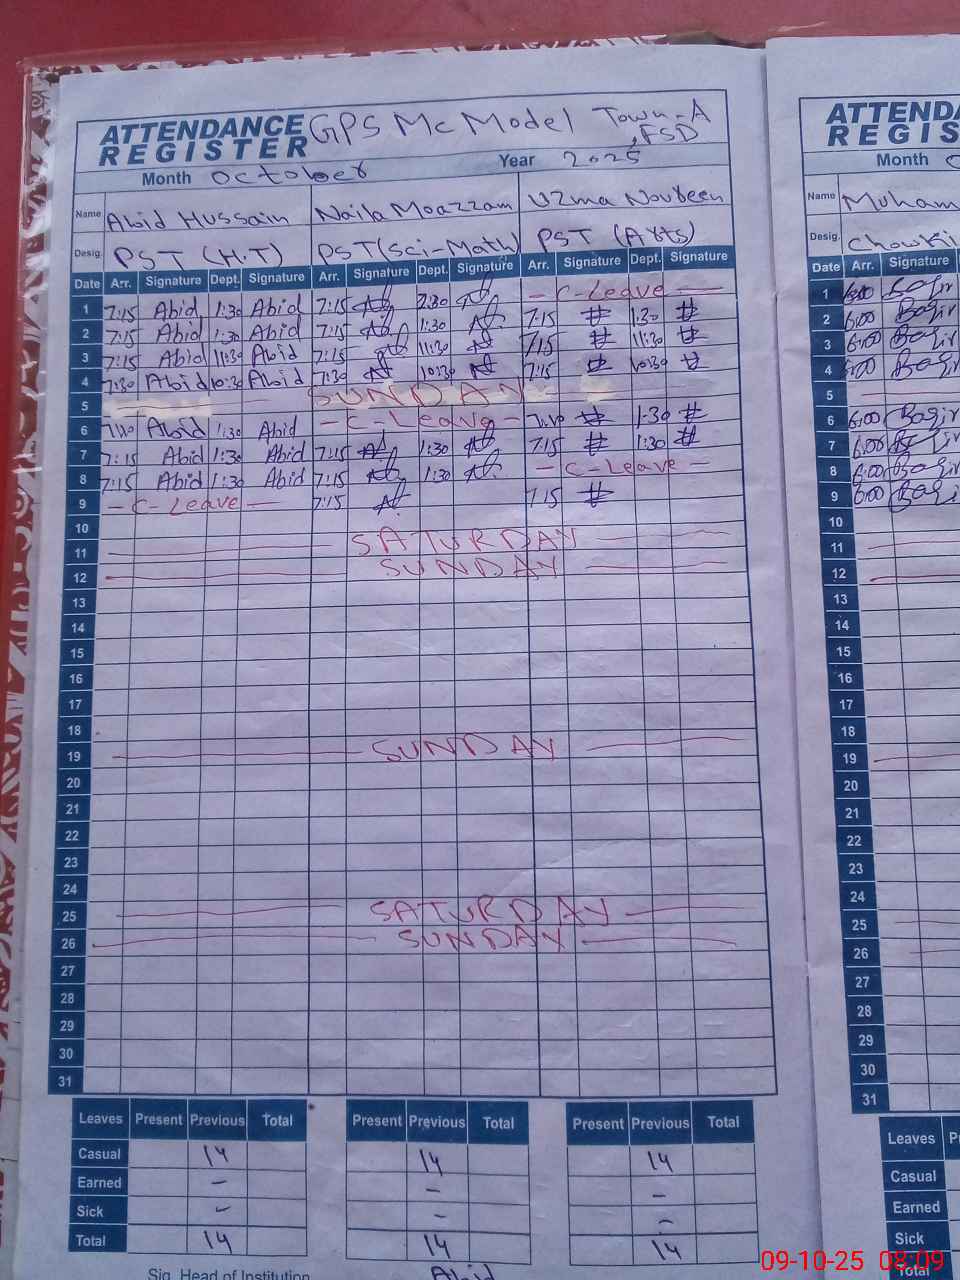 ATTENDANCE REGISTER GPS MC Model Town-A, FSD
Month October Year 2025
Name Abid Hussain Naila Moazzam Uzma Noureen
Desig. PST (H.T) PST (Sci-Math) PST (Arts)
Date Arr. Signature Dept. Signature Arr. Signature Dept. Signature Arr. Signature Dept. Signature
1 7:15 Abid 1:30 Abid 7:15 1:30 - C-Leave -
2 7:15 Abid 1:30 Abid 7:15 1:30 7:15 # 1:30 #
3 7:15 Abid 11:30 Abid 7:15 11:30 7:15 # 11:30 #
4 7:30 Abid 10:30 Abid 7:30 10:30 7:15 # 10:30 #
5 SUNDAY
6 7:10 Abid 1:30 Abid - C-Leave - 7:10 # 1:30 #
7 7:15 Abid 1:30 Abid 7:15 1:30 7:15 # 1:30 #
8 7:15 Abid 1:30 Abid 7:15 1:30 - C-Leave -
9 - C-Leave - 7:15 7:15 #
10
11 SATURDAY
12 SUNDAY
13
14
15
16
17
18
19 SUNDAY
20
21
22
23
24
25 SATURDAY
26 SUNDAY
27
28
29
30
31
Leaves Present Previous Total Present Previous Total Present Previous Total
Casual 14 14 14
Earned - - -
Sick - - -
Total 14 14 14
Sig. Head of Institution Abid
ATTENDA
REGIS
Month O
Name Muham
Desig. Chowki
Date Arr. Signature
1 6:00
2 6:00
3 6:00
4 6:00
5
6 6:00
7 6:00
8 6:00
9 6:00
10
11
12
13
14
15
16
17
18
19
20
21
22
23
24
25
26
27
28
29
30
31
Leaves P
Casual
Earned
Sick
Total
09-10-25 08:09